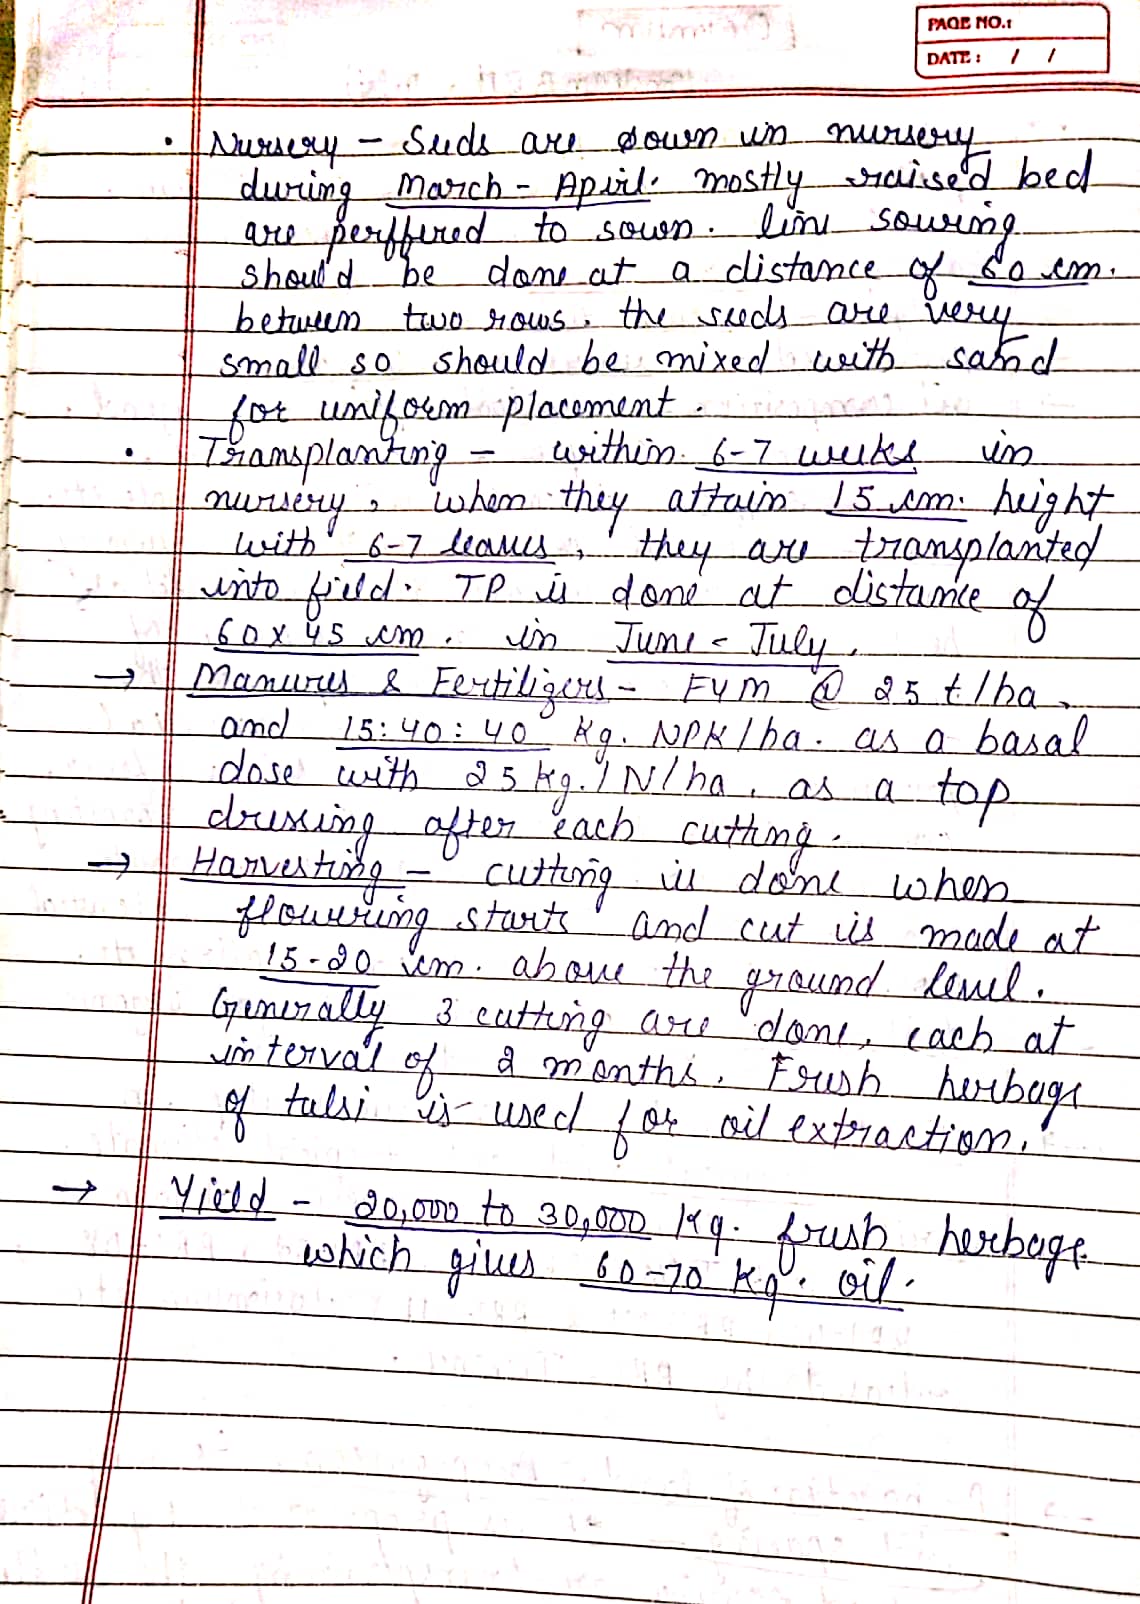 PAGE NO.:
DATE: / /
• Nursery – Seeds are sown in nursery
during March - April. mostly raised bed
are perffered to sown. line sowing
should be done at a distance of 60 cm.
between two rows. the seeds are very
small so should be mixed with sand
for uniform placement.
• Transplanting – within 6-7 weeks in
nursery, when they attain 15 cm. height
with 6-7 leaves, they are transplanted
into field. TP is done at distance of
60 x 45 cm. in June - July.
→ Manures & Fertilizers – FYM @ 25 t/ha,
and 15:40:40 Kg. NPK/ha. as a basal
dose with 25 kg./N/ha, as a top
dressing after each cutting.
→ Harvesting – cutting is done when
flowering starts and cut is made at
15-20 cm. above the ground level.
Generally 3 cutting are done, each at
interval of 2 months. Fresh herbage
of tulsi is used for oil extraction.
→ Yield – 20,000 to 30,000 Kg. fresh herbage
which gives 60-70 Kg. oil.